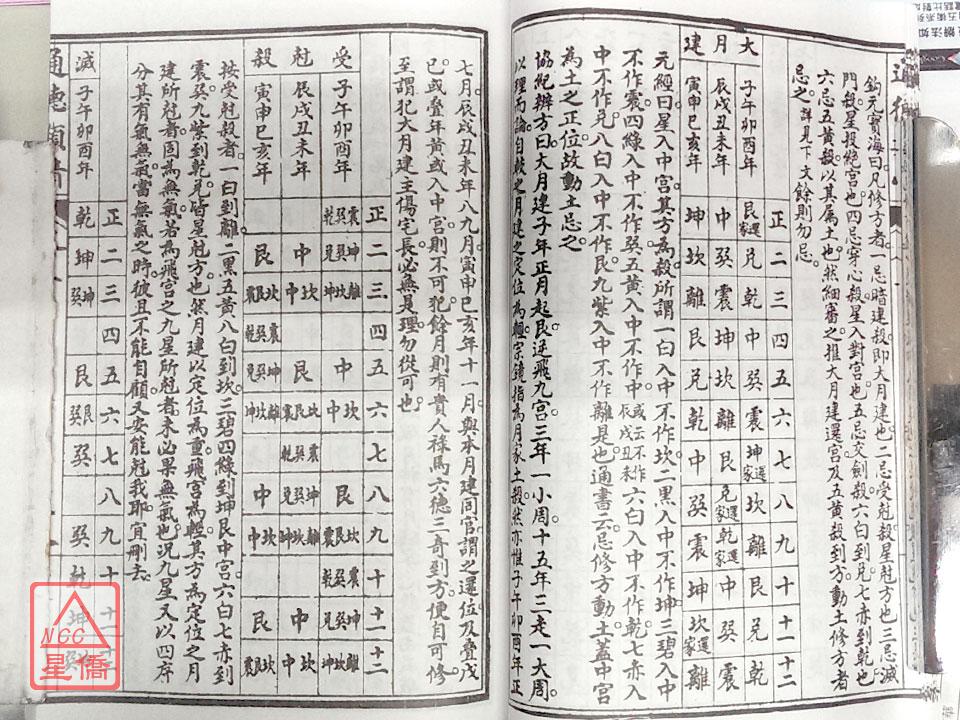 鈎元寶海曰凡修方者一忌暗建殺即大月建也二忌受剋殺星剋方也三忌滅
門殺星投絕宮也四忌穿心殺星入對宮也五忌交劍殺六白到兌七赤到乾也
六忌五黃殺以其屬土也然細審之推大月建還宮及五黃殺到方動土修方者
忌之詳見下文餘則勿忌
大月建
子午卯酉年
辰戌丑未年
寅申巳亥年
正 艮還家 中 坤
二 兌 巽 坎
三 乾 震 離
四 中 坤 艮
五 巽 坎 兌
六 震 離 乾
七 坤還家 艮 中
八 坎 兌還家 巽
九 離 乾還家 震
十 艮 中 坤
十一 兌 巽 坎還家
十二 乾 震 離
元經曰星入中宮其方為殺所謂一白入中不作坎二黑入中不作坤三碧入中
不作震四綠入中不作巽五黃入中不作中或云不作辰戌丑未六白入中不作乾七赤入
中不作兌八白入中不作艮九紫入中不作離是也通書云忌修方動土蓋中宮
為土之正位故動土忌之
協紀辦方曰大月建子年正月起艮逆飛九宮三年一小周十五年三走一大周
以理而論自較之月建之定位為輕宗鏡指為月家土殺然亦惟子午卯酉年正
七月辰戌丑未年八九月寅申巳亥年十一月與本月建同宮謂之還位及疊戊
己或疊年黃或入中宮則不可犯餘月則有貴人祿馬六德三奇到方便自可修
至謂犯大月建主傷宅長必無是理勿從可也
受剋殺
子午卯酉年
辰戌丑未年
寅申巳亥年
正 震巽乾
二 坤兌 中 艮
三 離坎 坎中 坎艮震
四 震巽乾
五 中 艮 坤兌巽
六 坎中 坎艮震 離坎坤
七 震巽乾
八 艮 坤兌巽 中
九 離坎坤 坎中
十 震巽乾
十一 中 艮
十二 離坎坤 坎中 坎艮震
按受剋殺者一白到離二黑五黃八白到坎三碧四綠到坤艮中宮六白七赤到
震巽九紫到乾兌皆星剋方也然月建以定位為重飛宮為輕其方為定位之月
建所剋者固為無氣若為飛宮之九星所剋者未必果無氣也況九星又以四序
分其有氣無氣當無氣之時彼且不能自顧又安能剋我耶宜刪去
滅
子午卯酉年
正 乾
二 坤
三 坤巽
四
五 艮
六 艮巽
七 巽
八
九 巽
十 乾
十一 坤
通德類情
NCC
星僑